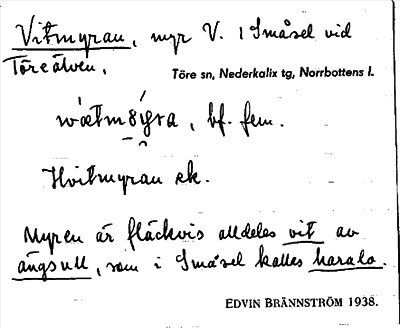 Vitmyran, myr V. i Småsel vid
Töreälven.
Töre sn, Nederkalix tg, Norrbottens l.
bf. fem.
Hvitmyran ek.
Myren är fläckvis alldeles vit av
ängsull, som i Småsel kallas harala.
EDVIN BRÄNNSTRÖM 1938.